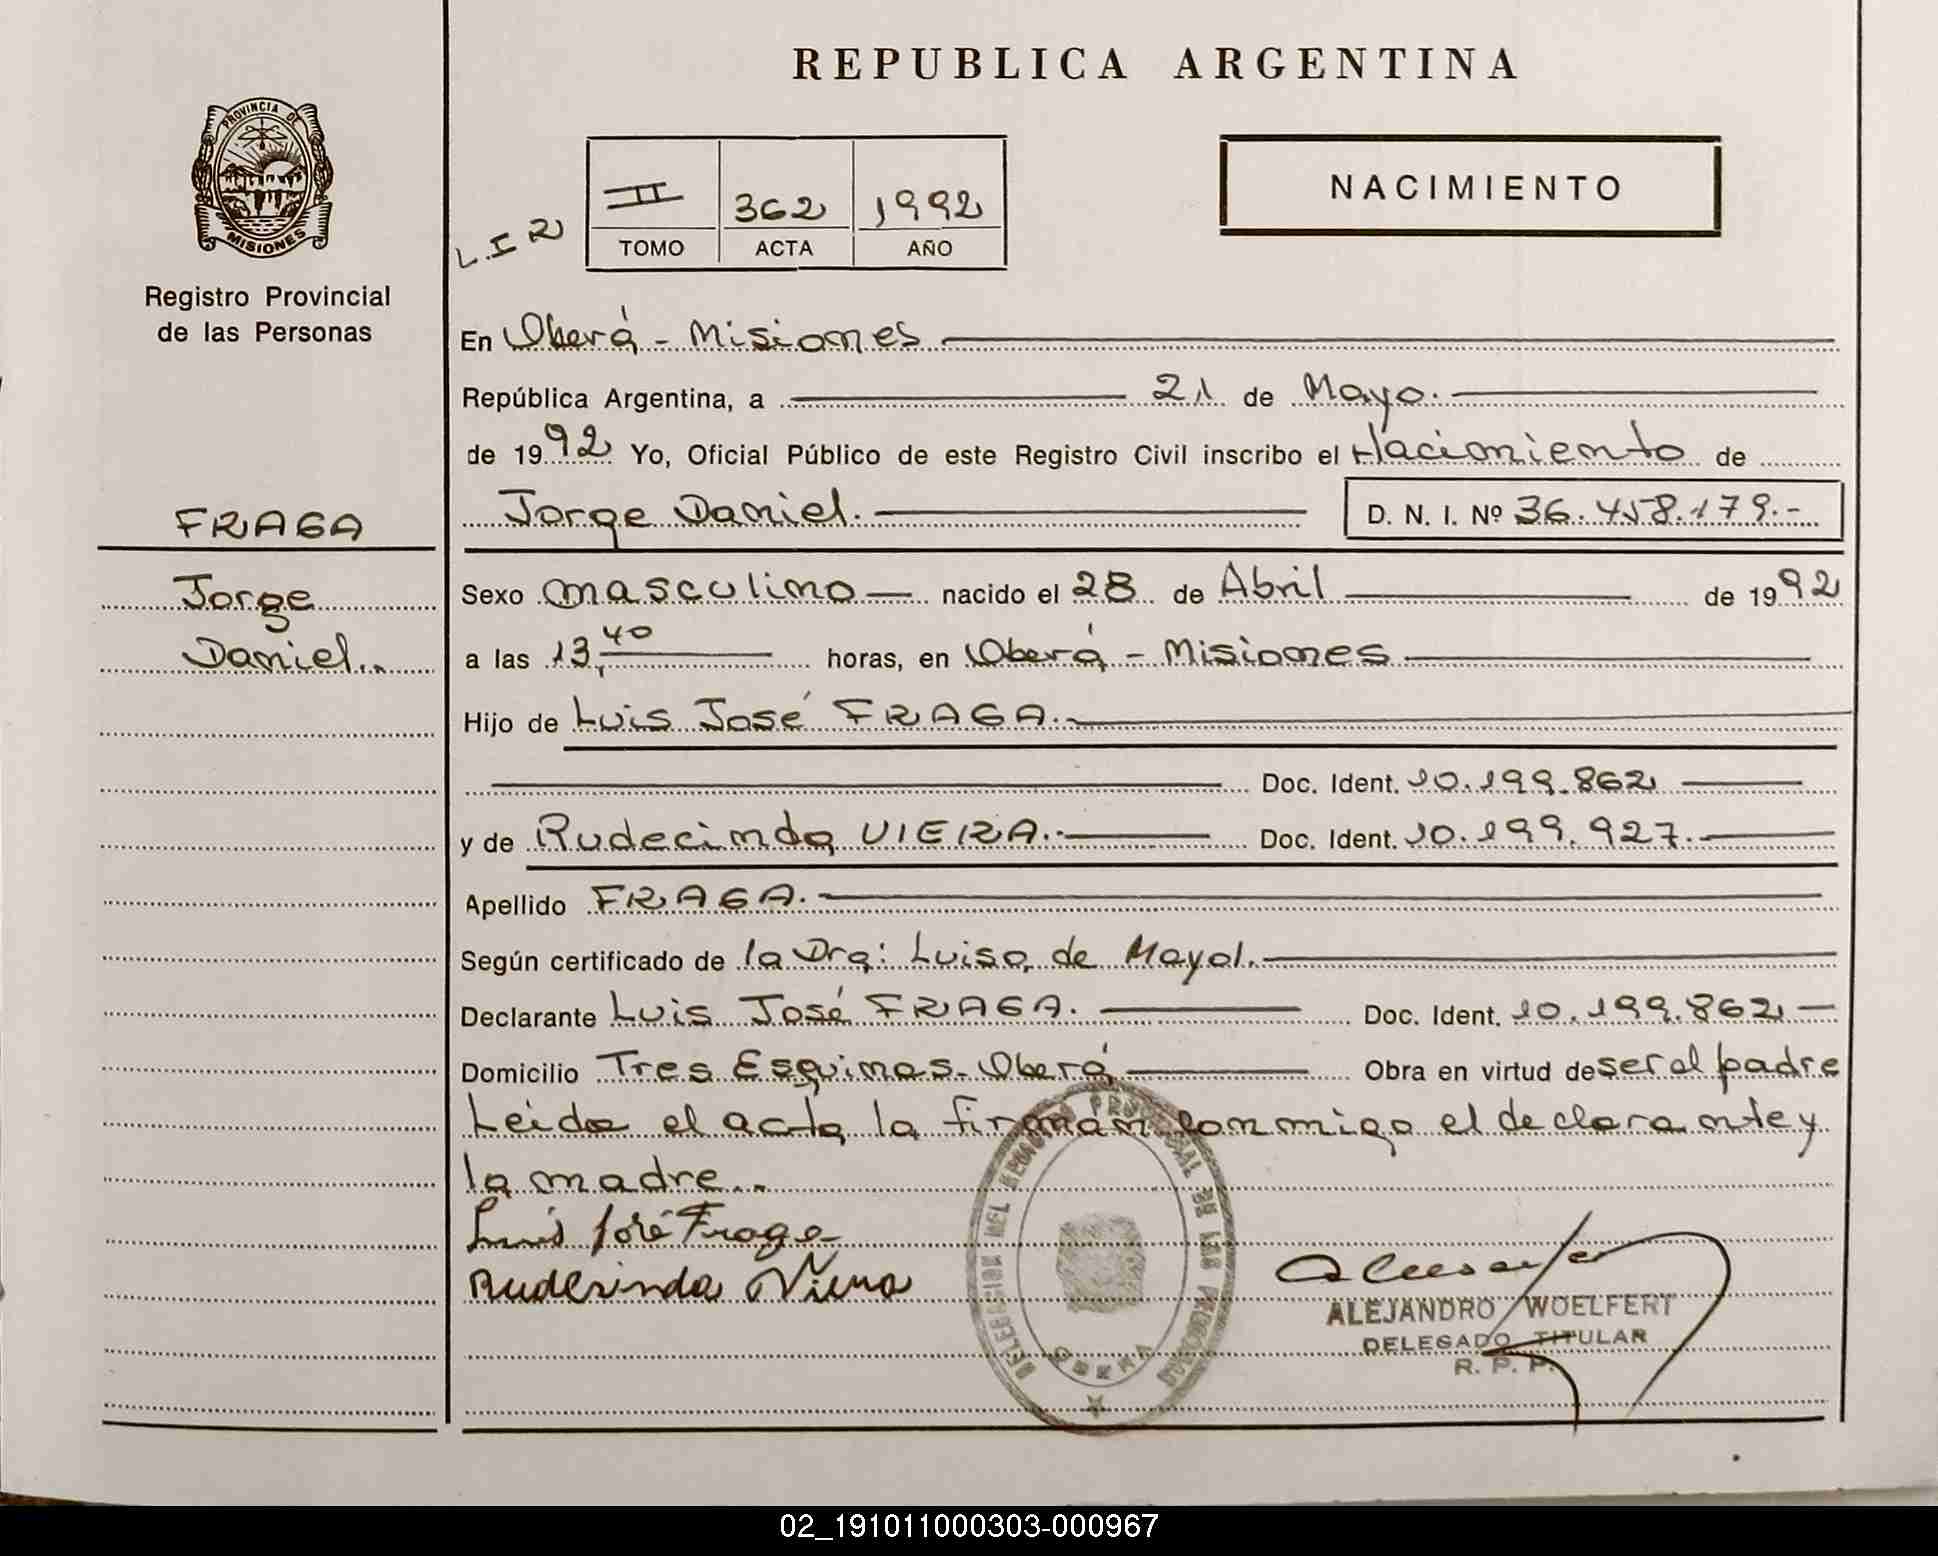 REPUBLICA ARGENTINA
PROVINCIA DE
MISIONES
Registro Provincial
de las Personas
L.I R
II 362 1992
TOMO ACTA AÑO
NACIMIENTO
En Oberá - Misiones
República Argentina, a 21 de Mayo.
de 1992 Yo, Oficial Público de este Registro Civil inscribo el Nacimiento de
Jorge Daniel. D. N. I. Nº 36.458.179.-
FRAGA
Jorge
Daniel..
Sexo masculino nacido el 28 de Abril de 1992
a las 13,40 horas, en Oberá - Misiones
Hijo de Luis José FRAGA.
Doc. Ident. 10.199.862
y de Rudecinda VIERA. Doc. Ident. 10.199.927.
Apellido FRAGA.
Según certificado de la Dra: Luisa de Mayol.
Declarante Luis José FRAGA. Doc. Ident. 10.199.862
Domicilio Tres Esquinas-Oberá Obra en virtud de ser el padre
Leída el acta la firmán conmigo el declarante y
la madre..
Luis José Fraga
Rudesinda Viera
DELEGACION DEL REGISTRO PROVINCIAL DE LAS PERSONAS
OBERA
ALEJANDRO WOELFERT
DELEGADO TITULAR
R. P. P.
02_191011000303-000967